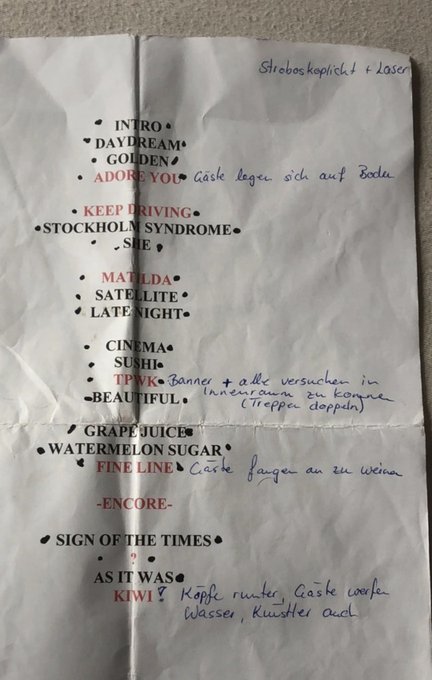 Stroboskoplicht + Laser
INTRO
DAYDREAM
GOLDEN
ADORE YOU Gäste legen sich auf Boden
KEEP DRIVING
STOCKHOLM SYNDROME
SHE
MATILDA
SATELLITE
LATE NIGHT
CINEMA
SUSHI
TPWK Banner + alle versuchen in
Innenraum zu kommen
BEAUTIFUL (Treppen doppeln)
GRAPE JUICE
WATERMELON SUGAR
FINE LINE Gäste fangen an zu weinen
-ENCORE-
SIGN OF THE TIMES
?
AS IT WAS
KIWI ! Köpfe runter, Gäste werfen
Wasser, Künstler auch